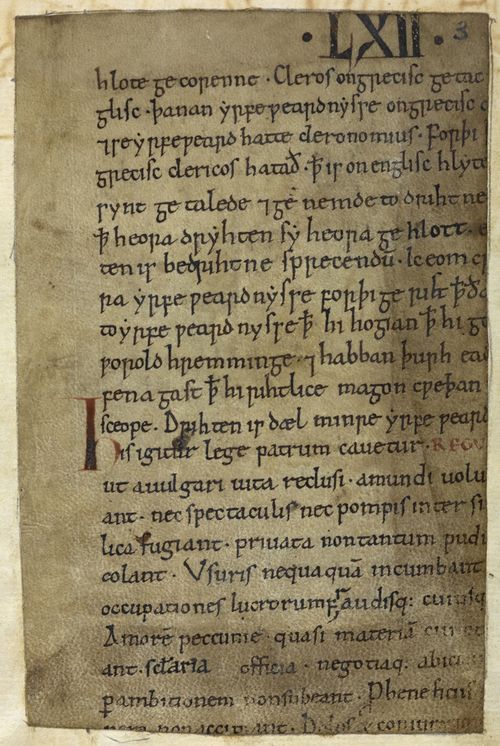 ·LXII· 3
hlote ge corenne · Cleros on grecisc ge tac
glisc · þanan ẏrfeƿeardnẏsse on grecisc c
⁊ se ẏrfeƿeard hatte cleronomius · Forþi
grecisc clericos hatað · ꝥ is on englisc hlẏte
sẏnt ge talede ⁊ ge nemde to driht ne
ꝥ heora drẏhten sẏ heora ge hlott ·
ten is be drihtne sprecendū · Ic eom
ra ẏrfe ƿeardnẏsse forþi ge rist ꝥ
to ẏrfe ƿeardnẏsse ꝥ hi hogian ꝥ hi
ƿorold hremminge · ⁊ habban þurh
fena gast ꝥ hi rihtlice magon cƿeþan
sceope · Drihten is dæl minre ẏrfe ƿeard
his igitur lege patrum cauetur · REGU
ut a uulgari uita reclusi · a mundi uolu
ant · nec spectaculis nec pompis inter si
lica fugiant · priuata non tantum pudi
colant · Usuris nequaquā incumbant
occupationes lucrorum fraudisq: cuiusq
Amorē peccunie quasi materiā
ant · scłaria officia · negotiaq: abici
ꝑ ambitionem non subeant · P beneficiis
nera non accipiant · Dolos &amp; coniuratio